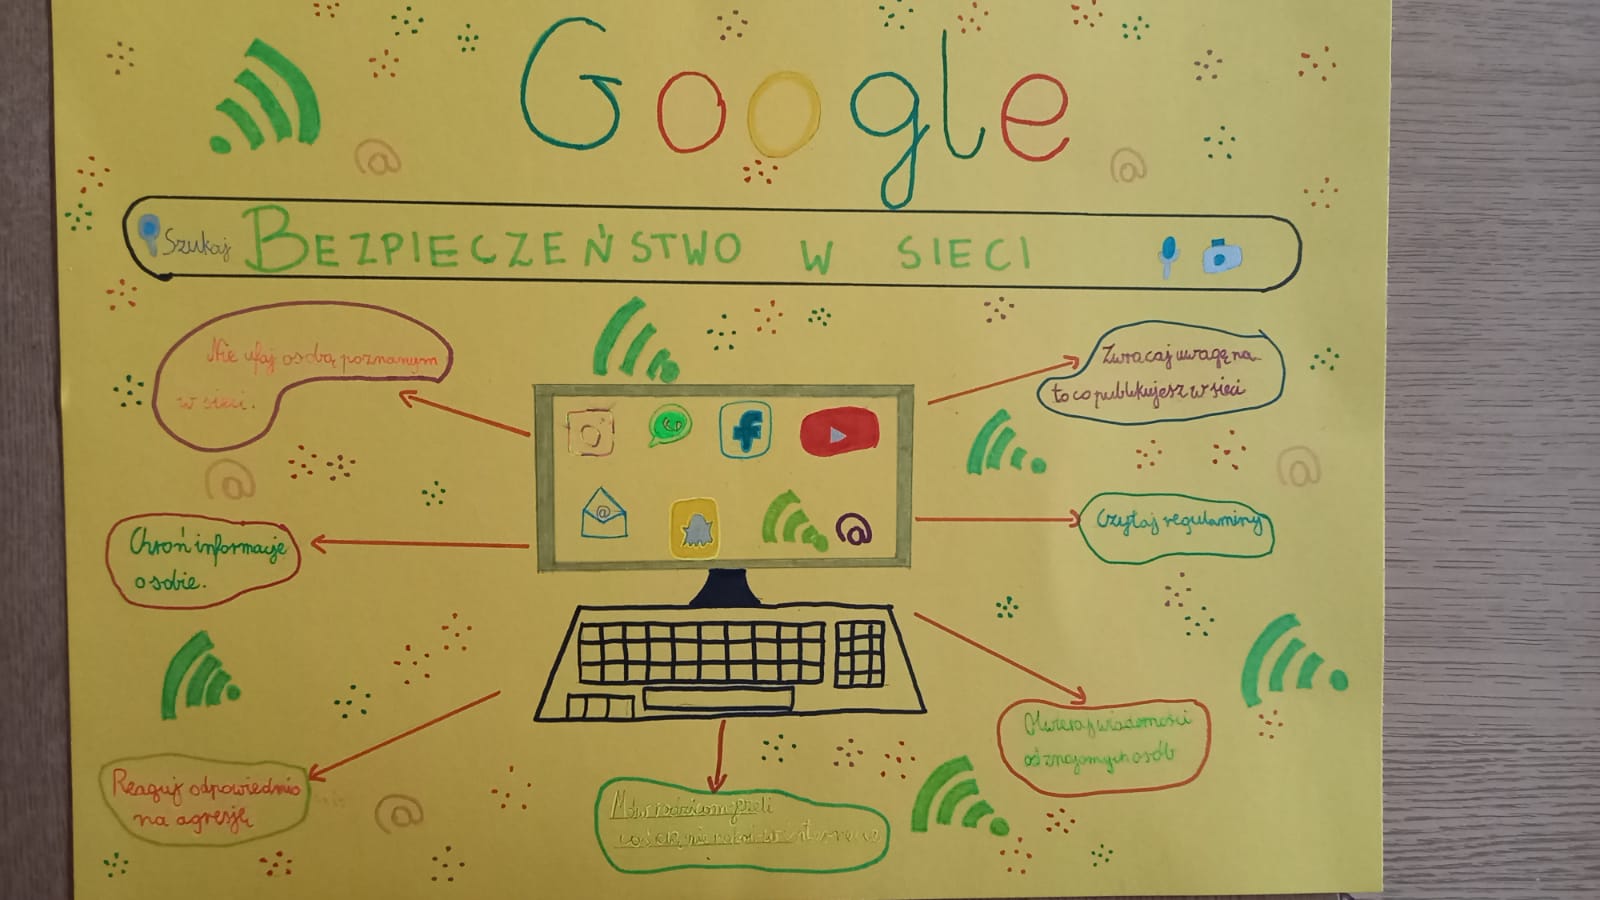 Google
Szukaj BEZPIECZEŃSTWO W SIECI
Nie ufaj osobą poznanym
w sieci.
Zwracaj uwagę na
to co publikujesz w sieci
Chroń informacje
o sobie.
Czytaj regulaminy
@
Otwieraj wiadomości
od znajomych osób
Reaguj odpowiednio
na agresję
Mów rodzicom jeżeli
coś cię